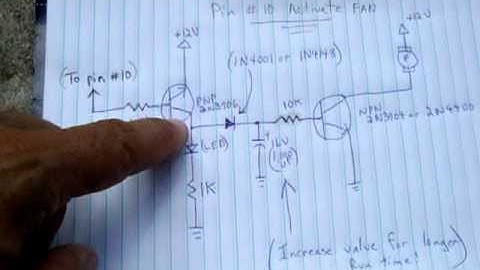 Pin #10 Activate FAN
+12V
+12V
(To pin #10)
(1N4001 or 1N4148)
PNP
2N3906
10K
NPN
2N3904 or 2N4400
(LED)
+ 16V
1K
(Increase value for longer
Run time!